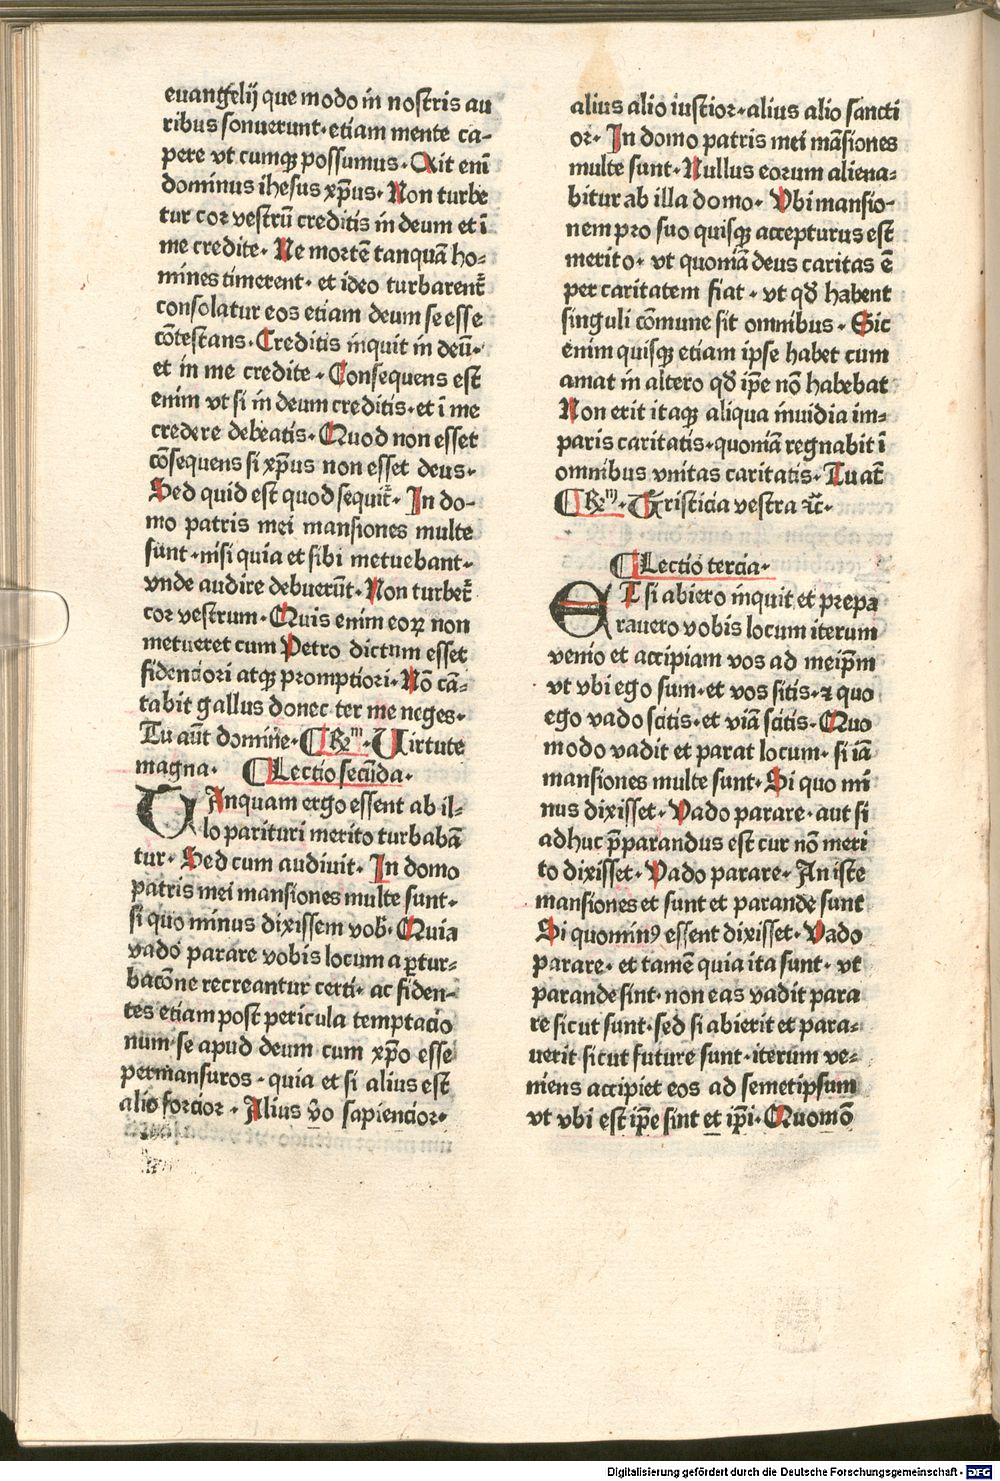 euangelij que modo in nostris au
ribus sonuerunt· etiam mente ca-
pere vt cumqꝫ possumus· Ait eni̅
dominus ihesus xp̅us· Non turbe
tur cor vestru̅ creditis in deum et i̅
me credite· Ne morte̅ tanqua̅ ho-
mines timerent· et ideo turbarent᷑
consolatur eos etiam deum se esse
co̅testans· Creditis inquit in deu̅·
et in me credite· Consequens est
enim vt si in deum creditis· et i̅ me
credere debeatis· Quod non esset
co̅sequens si xp̅us non esset deus·
Sed quid est quod sequit᷑· In do-
mo patris mei mansiones multe
sunt· nisi quia et sibi metuebant·
vnde audire debueru̅t· Non turbet᷑
cor vestrum· Quis enim eoꝝ non
metueret cum Petro dictum esset
fidenciori atqꝫ promptiori· No̅ ca̅-
tabit gallus donec ter me neges·
Tu au̅t domine· ℟m· Uirtute
magna· Lectio secu̅da·
TAnquam ergo essent ab il-
lo parituri merito turbaba̅
tur· Sed cum audiuit· In domo
patris mei mansiones multe sunt·
si quo minus dixissem vob̅· Quia
vado parare vobis locum a ꝑtur-
bac̅one recreantur certi· ac fiden-
tes etiam post pericula temptacio
num· se apud deum cum xp̅o esse
permansuros· quia et si alius est
alio forcior· Alius v̅o sapiencior·
alius alio iustior· alius alio sancti
or· In domo patris mei ma̅siones
multe sunt· Nullus eorum aliena-
bitur ab illa domo· Vbi mansio-
nem pro suo quisqꝫ accepturus est
merito· vt quonia̅ deus caritas e̅
per caritatem fiat· vt qd̅ habent
singuli co̅mune sit omnibus· Sic
enim quisqꝫ etiam ipse habet cum
amat in altero qd̅ ip̅e no̅ habebat
Non erit itaqꝫ aliqua inuidia im-
paris caritatis· quonia̅ regnabit i̅
omnibus vnitas caritatis· Tu at̅
℟m· Tristicia vestra ꝛc̅·
Lectio tercia·
ET si abiero inquit et prepa
rauero vobis locum iterum
venio et accipiam vos ad meip̅m
vt vbi ego sum· et vos sitis· ꝛ quo
ego vado scitis· et via̅ scitis· Quo
modo vadit et parat locum· si ia̅
mansiones multe sunt· Si quo mi̅
nus dixisset· Vado parare· aut si
adhuc p̅parandus est cur no̅ meri
to dixisset· Vado parare· An iste
mansiones et sunt et parande sunt
Si quominꝰ essent dixisset· Vado
parare· et tame̅ quia ita sunt· vt
parande sint· non eas vadit para
re sicut sunt· sed si abierit et para-
uerit sicut future sunt· iterum ve-
niens accipiet eos ad semetipsum
vt vbi est ip̅e sint et ip̅i· Quomo̅
Digitalisierung gefördert durch die Deutsche Forschungsgemeinschaft - DFG